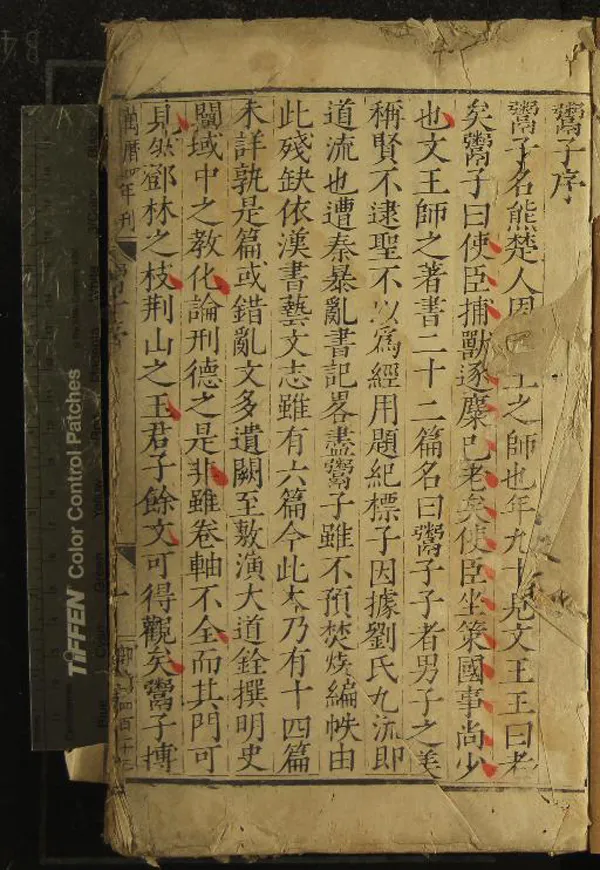 鬻子序
鬻子名熊楚人周之師也年九十見文王王曰老
矣鬻子曰使臣捕獸逐麋已老矣使臣坐策國事尚少
也文王師之著書二十二篇名曰鬻子子者男子之美
稱賢不逮聖不以爲經用題紀標子因據劉氏九流即
道流也遭秦暴亂書記畧盡鬻子雖不預焚燒編帙由
此殘缺依漢書藝文志雖有六篇今此本乃有十四篇
未詳孰是篇或錯亂文多遺闕至敷演大道銓撰明史
闡域中之教化論刑德之是非雖卷軸不全而其門可
見然鄧林之枝荆山之玉君子餘文可得觀矣鬻子摶
萬曆四年刊
鬻子序
一
四百十三
TIFFEN Color Control Patches